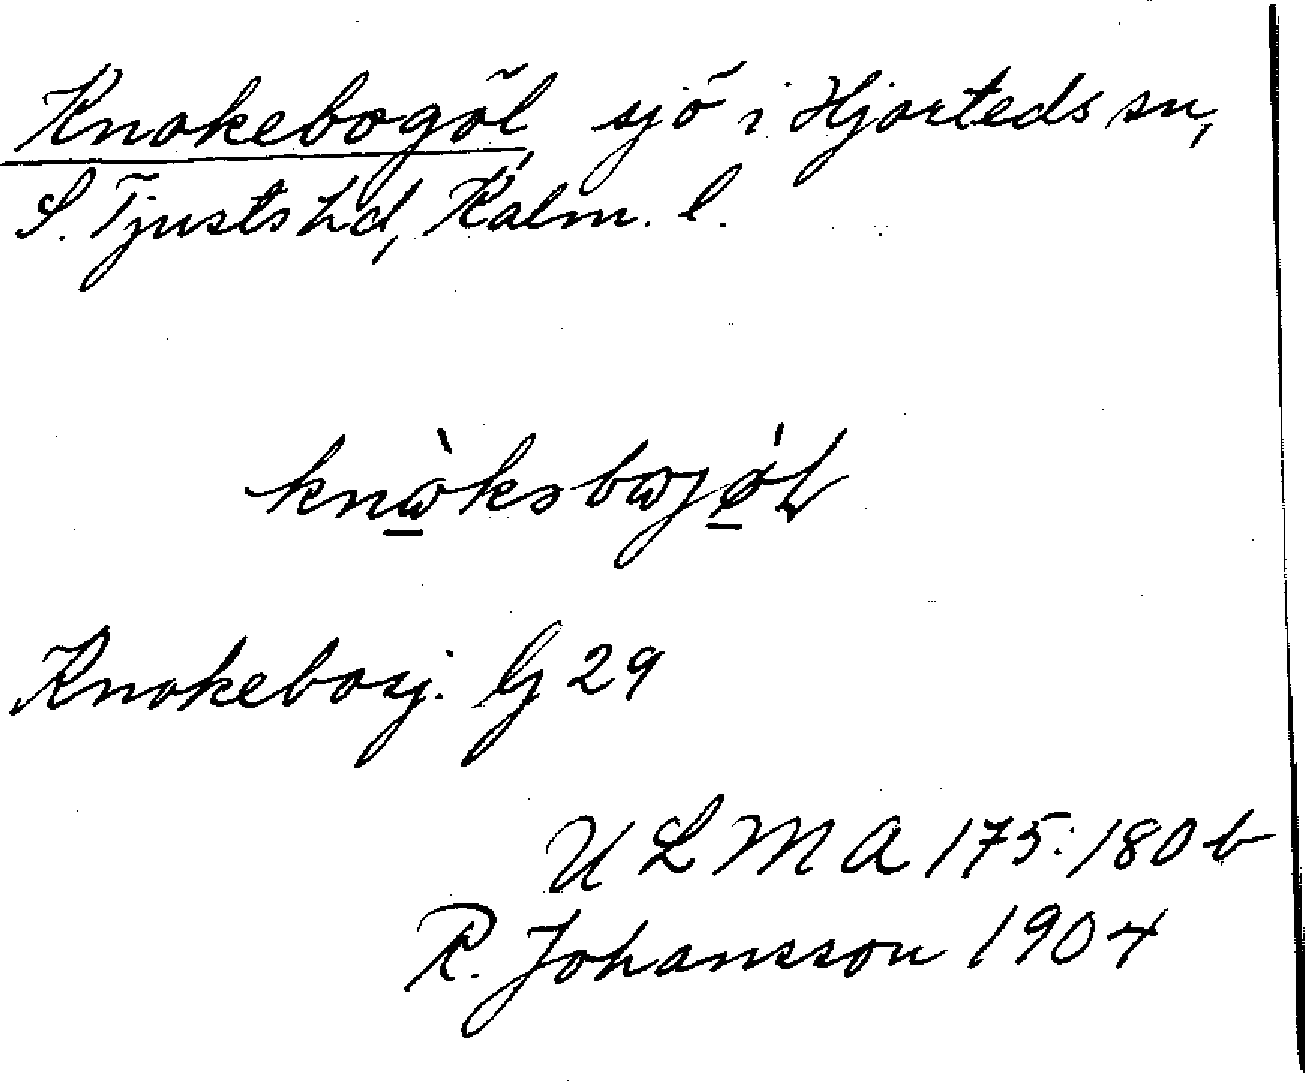 Knokebogöl sjö i Hjorteds sn,
S. Tjusts hd, Kalm. l.
Knokebosj. G 29
ULMA 175:180 b
R. Johansson 1904